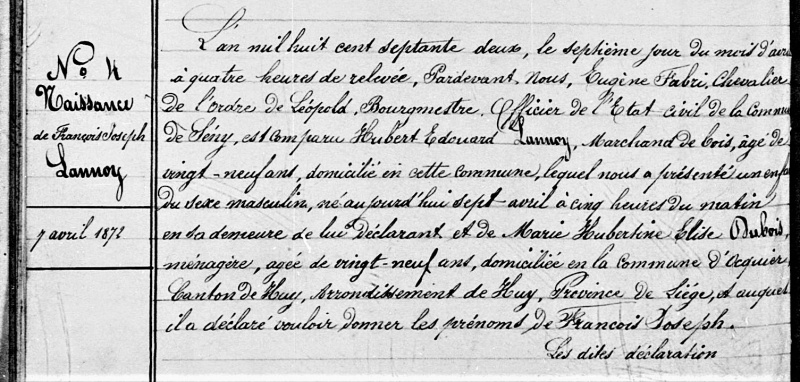 N° 4
Naissance
de François Joseph
Lannoy
7 avril 1872
L'an mil huit cent septante deux, le septième jour du mois d'avril
à quatre heures de relevée, Pardevant, Nous, Eugène Fabri, Chevalier
de l'ordre de Léopold, Bourgmestre, Officier de l'Etat civil de la Commune
de Sény, est comparu Hubert Edouard Lannoy, Marchand de bois, âgé de
vingt-neuf ans, domicilié en cette commune, lequel nous a présenté un enfa
du sexe masculin, né aujourd'hui sept avril à cinq heures du matin
en sa demeure de lui déclarant et de Marie Hubertine Elise Dubois,
ménagère, agée de vingt-neuf ans, domiciliée en la commune d'Ocquier,
Canton de Huy, Arrondissement de Huy, Province de Liége, et auquel
il a déclaré vouloir donner les prénoms de François Joseph.
Les dites déclaration